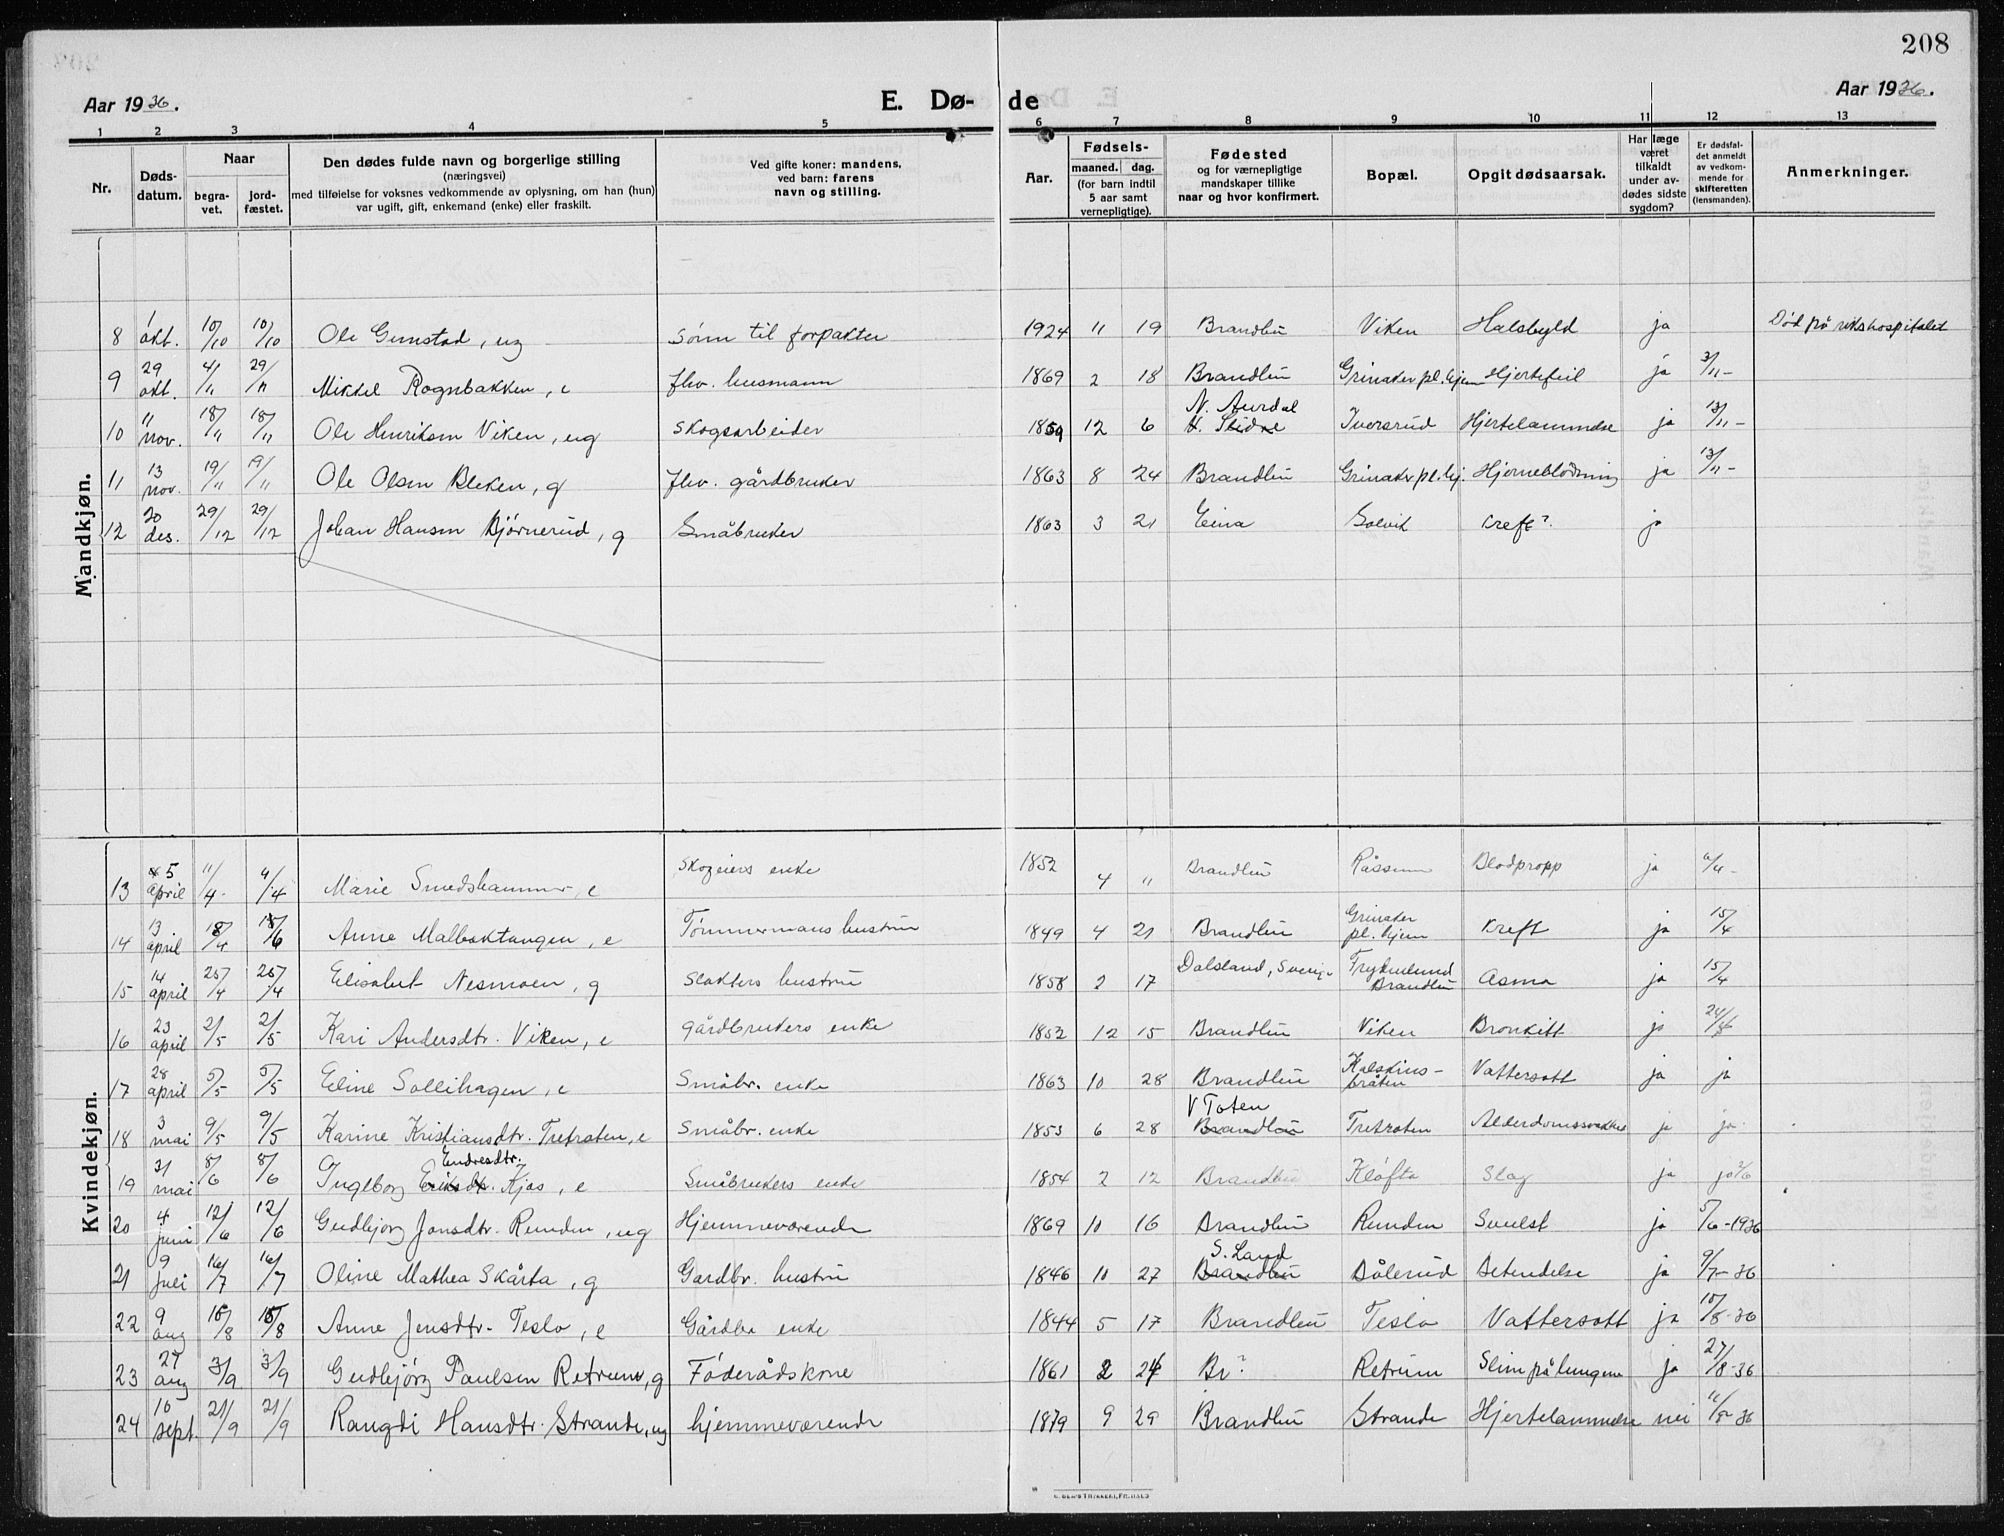 208
Aar 1936.
E. Dø-
de
Aar 1936.
1 2 3 4 5 6 7 8 9 10 11 12 13
Nr.
Døds-
datum.
Naar
begra-
vet.
jord-
fæstet.
Den dødes fulde navn og borgerlige stilling
(næringsvei)
med tilføielse for voksnes vedkommende av oplysning, om han (hun)
var ugift, gift, enkemand (enke) eller fraskilt.
Ved gifte koner: mandens,
ved barn: farens
navn og stilling.
Aar.
Fødsels-
maaned. dag.
(for barn indtil
5 aar samt
vernepligtige).
Fødested
og for værnepligtige
mandskaper tillike
naar og hvor konfirmert.
Bopæl.
Opgit dødsaarsak.
Har læge
været
tilkaldt
under av-
dødes sidste
sygdom?
Er dødsfal-
det anmeldt
av vedkom-
mende for
skifteretten
(lensmanden).
Anmerkninger.
Mandkjøn.
8 1 okt. 10/10 10/10 Ole Grinstad, ug sønn til forpakter 1924 11 19 Brandbu Viken Halsbyld ja Død på rikshospitalet
9 29 okt. 4/11 29/11 Mikkel Rognbakken, e fhv. husmann 1869 2 18 Brandbu Grinaker pl.hjem Hjertefeil ja 3/11-
N. Aurdal
10 11 nov. 18/11 18/11 Ole Henriksen Viken, ug skogsarbeider 1859 12 6 V. Slidre Iversrud Hjertelammelse ja 13/11-
11 13 nov. 19/11 19/11 Ole Olsen Bleken, g fhv. gårdbruker 1863 8 24 Brandbu Grinaker pl.hj. Hjerneblødning ja 13/11-
12 20 des. 29/12 29/12 Johan Hansen Bjørnerud, g Småbruker 1863 3 21 Eina Solvik Kreft? ja
Kvindekjøn.
13 5 april 11/4 4/4 Marie Smedshammer, e Skogeiers enke 1852 4 " Brandbu Råssum Blodpropp ja 6/4-
14 13 april 18/4 18/6 Anne Malbaktangen, e Tømmermanns hustru 1849 4 21 Brandbu Grinaker pl. hjem Kreft ja 15/4
15 14 april 25/4 25/4 Elisabet Nesmoen, g slakters hustru 1858 2 17 Dalsland, Sverige Frydenlund Brandbu Asma ja 15/4
16 23 april 2/5 2/5 Kari Andersdtr. Viken, e gårdbrukers enke 1852 12 15 Brandbu Viken Bronkitt ja
17 28 april 5/5 5/5 Eline Sollihagen, e Småbr. enke 1863 10 28 Brandbu Kalskinsbråten Vattersott ja ja
V Toten
18 3 mai 9/5 9/5 Karine Kristiansdtr. Tretraten, e Småbr. enke 1853 6 28 Brandbu Tretroten Alderdomssvakhet ja ja
Endresdtr.
19 31 mai 8/6 8/6 Ingeborg Eriksdtr. Kjos, e Småbrukers enke 1854 2 12 Brandbu Kløfta Slag ja ja 2/6
20 4 juni 12/6 12/6 Gudbjørg Jonsdtr. Runden, ug Hjemmeværende 1869 10 16 Brandbu Runden Svulst ja 5/6-1936
S. Land
21 9 juli 16/7 16/7 Oline Mathea Skårta, g Gardbr. hustru 1846 10 27 Brandbu Dålerud Betendelse ja 9/7-36
22 9 aug 15/8 15/8 Anne Jensdtr. Teslo, e Gårdbr enke 1844 5 17 Brandbu Teslo Vattersott ja 10/8-36
23 27 aug 3/9 3/9 Gudbjørg Paulsen Retrum, g Føderådskone 1861 2 24 Br? Retrum Slim på lungene ja 27/8-36
24 10 sept. 21/9 21/9 Rangdi Hansdtr. Strande, ug hjemmeværende 1879 9 29 Brandbu Strande Hjertelammelse nei 11/9-36